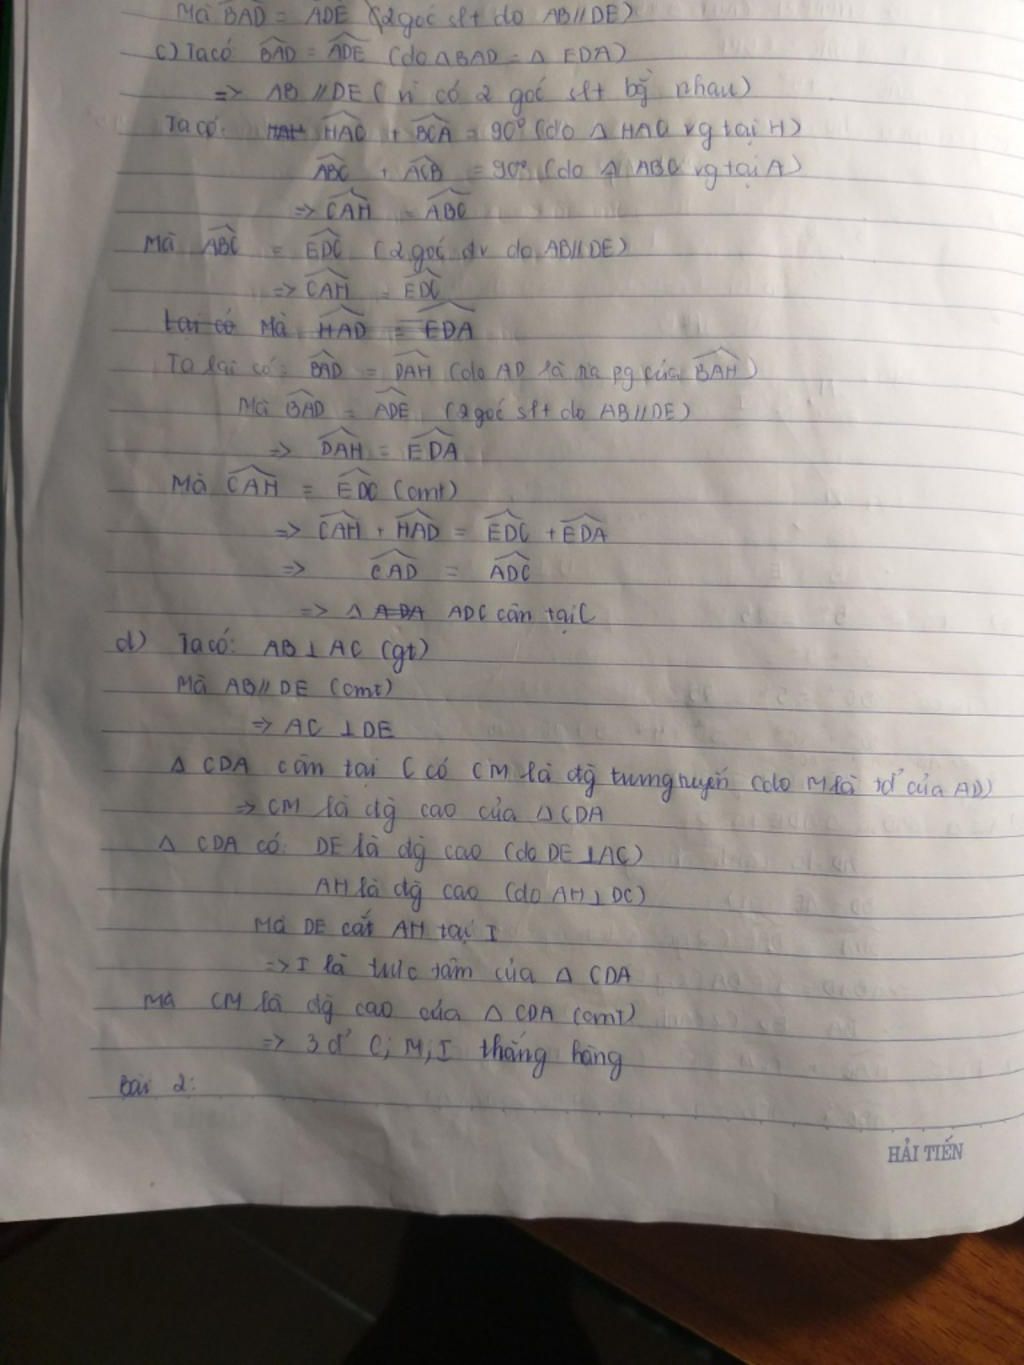 Mà BAD = ADE (2 góc slt do AB//DE)
c) Ta có BAD = ADE (do △BAD = △ EDA)
=> AB // DE ( vì có 2 góc slt bg̀ nhau)
Ta có: HAC + BCA = 90° (do △ HAC vg tại H)
ABC + ACB = 90° (do △ ABC vg tại A)
=> CAH = ABC
Mà ABC = EDC (2 góc đv do AB//DE)
=> CAH = EDC
Lại có Mà HAD = EDA
Ta lại có: BAD = DAH (do AD là tia pg của BAH)
Mà BAD = ADE (2 góc slt do AB//DE)
=> DAH = EDA
Mà CAH = EDC (cmt)
=> CAH + HAD = EDC + EDA
=> CAD = ADC
=> △ ADA ADC cân tại C
d) Ta có: AB ⊥ AC (gt)
Mà AB // DE (cmt)
=> AC ⊥ DE
△ CDA cân tại C có CM là đg̀ trung tuyến (do M là tđ' của AD)
=> CM là đg̀ cao của △ CDA
△ CDA có: DE là đg̀ cao (do DE ⊥ AC)
AH là đg̀ cao (do AH ⊥ DC)
Mà DE cắt AH tại I
=> I là trực tâm của △ CDA
Mà CM là đg̀ cao của △ CDA (cmt)
=> 3 đ' C; M; I thẳng hàng
Bài 2:
HẢI TIẾN